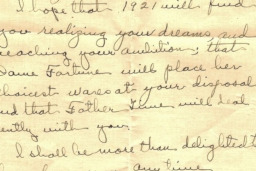 I hope that 1921 will find
you realizing your dreams and
reaching your ambition; that
Dame Fortune will place her
choicest wares at your disposal
and that Father Time will deal
gently with you.
I shall be more than delighted t
any time